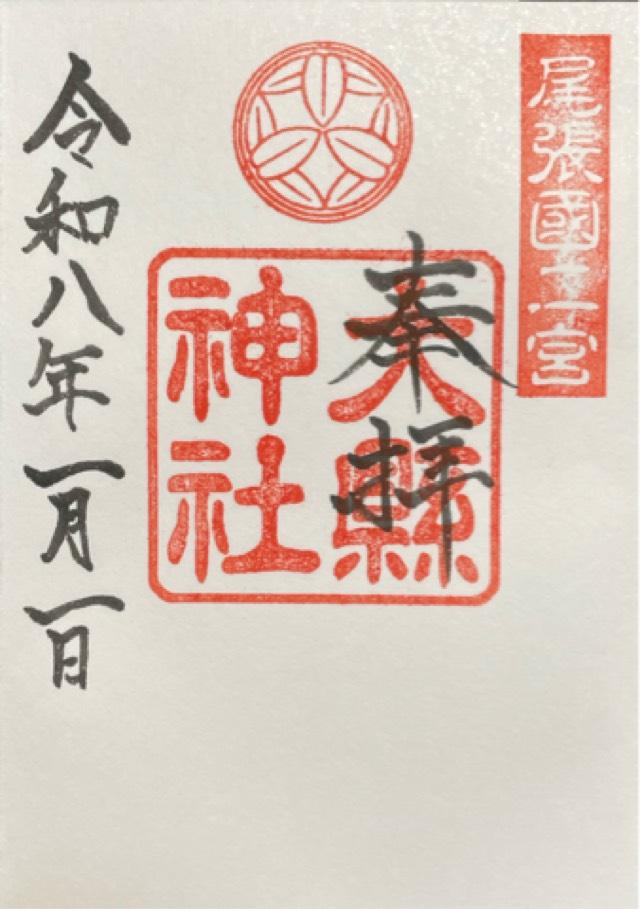 尾張國二之宮
奉拝
大縣
神社
令和八年一月一日